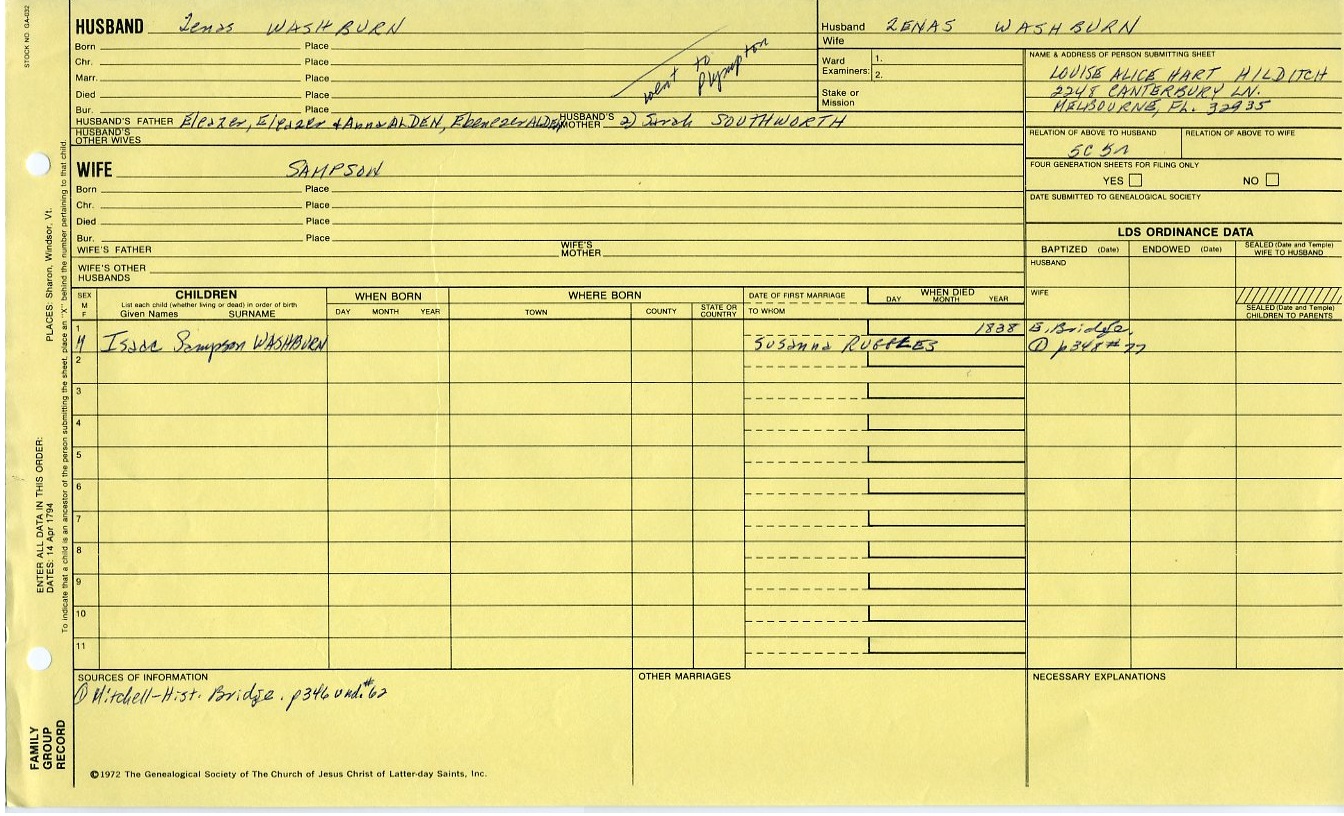 STOCK NO. GA-032
HUSBAND Zenas WASHBURN
Born Place
Chr. Place
Marr. Place
Died Place
Bur. Place
went to
Plympton
HUSBAND'S FATHER Eleazer, Eleazer & Anna ALDEN, Ebenezer ALDEN HUSBAND'S MOTHER 2) Sarah SOUTHWORTH
HUSBAND'S OTHER WIVES
Husband ZENAS WASHBURN
Wife
Ward Examiners: 1.
2.
Stake or Mission
NAME & ADDRESS OF PERSON SUBMITTING SHEET
LOUISE ALICE HART HILDITCH
2248 CANTERBURY LN.
MELBOURNE, FL. 32935
RELATION OF ABOVE TO HUSBAND RELATION OF ABOVE TO WIFE
5C 5R
FOUR GENERATION SHEETS FOR FILING ONLY
YES NO
DATE SUBMITTED TO GENEALOGICAL SOCIETY
WIFE SAMPSON
Born Place
Chr. Place
Died Place
Bur. Place
WIFE'S FATHER WIFE'S MOTHER
WIFE'S OTHER HUSBANDS
LDS ORDINANCE DATA
BAPTIZED (Date) ENDOWED (Date) SEALED (Date and Temple) WIFE TO HUSBAND
HUSBAND
WIFE
SEALED (Date and Temple) CHILDREN TO PARENTS
SEX M F
CHILDREN
List each child (whether living or dead) in order of birth
Given Names SURNAME
WHEN BORN
DAY MONTH YEAR
WHERE BORN
TOWN COUNTY STATE OR COUNTRY
DATE OF FIRST MARRIAGE
TO WHOM
WHEN DIED
DAY MONTH YEAR
1 1838 E. Bridge.
M Isaac Sampson WASHBURN Susanna RUGGLES ① p348 #77
2
3
4
5
6
7
8
9
10
11
SOURCES OF INFORMATION
① Mitchell-Hist. Bridge. p346 und. #62
OTHER MARRIAGES
NECESSARY EXPLANATIONS
©1972 The Genealogical Society of The Church of Jesus Christ of Latter-day Saints, Inc.
FAMILY
GROUP
RECORD
ENTER ALL DATA IN THIS ORDER:
DATES: 14 Apr 1794
PLACES: Sharon, Windsor, Vt.
To indicate that a child is an ancestor of the person submitting the sheet, place an "X" behind the number pertaining to that child.